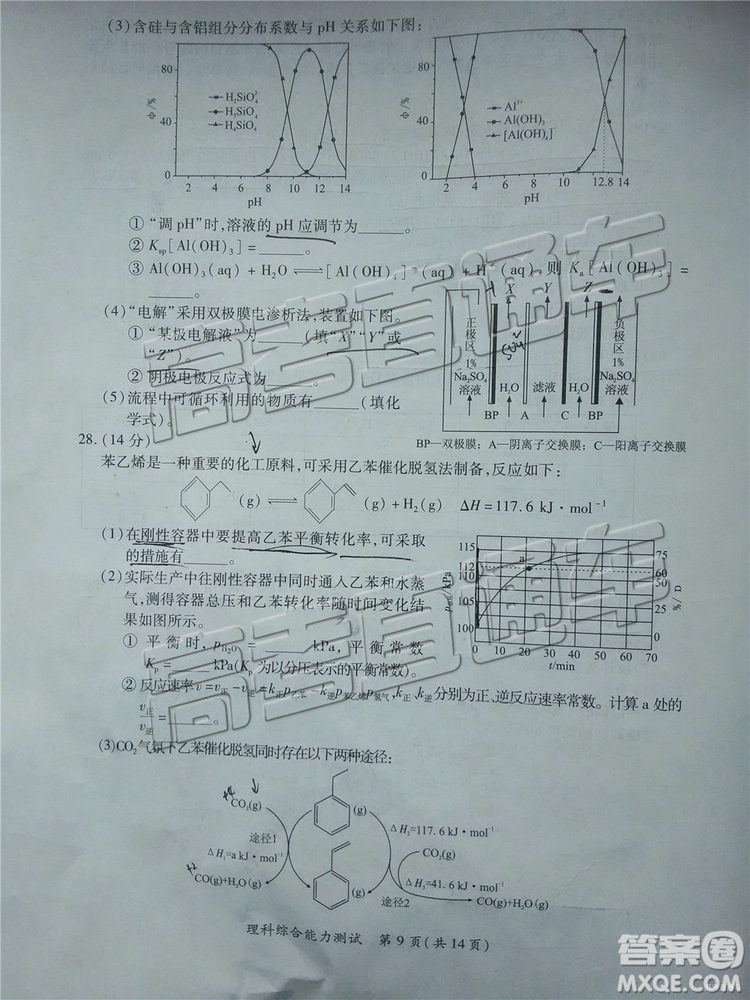 (3)含硅与含铝组分分布系数与 pH 关系如下图:
80
40
0
Φ/%
H₂SiO₄²⁻
H₃SiO₄⁻
H₄SiO₄
0 2 4 6 8 10 12 14
pH
80
40
0
Φ/%
Al³⁺
Al(OH)₃
[Al(OH)₄]⁻
0 2 4 10 12.8 14
pH
①“调 pH”时,溶液的 pH 应调节为______。
② Ksp[Al(OH)₃]=______。
③ Al(OH)₃(aq)+H₂O⇌[Al(OH)₄]⁻(aq)+H⁺(aq),则 Ka[Al(OH)₃]=
______。
(4)“电解”采用双极膜电渗析法,装置如下图。
①“某极电解液”为______(填“X”“Y”或
“Z”)。
② 阴极电极反应式为______。
(5)流程中可循环利用的物质有______(填化
学式)。
X Y Z
正极区 1% Na₂SO₄ 溶液
H₂O
滤液
H₂O
负极区 1% Na₂SO₄ 溶液
BP A C BP
BP—双极膜;A—阴离子交换膜;C—阳离子交换膜
28.(14 分)
苯乙烯是一种重要的化工原料,可采用乙苯催化脱氢法制备,反应如下:
(g)⇌(g)+H₂(g) ΔH=117.6 kJ·mol⁻¹
(1)在刚性容器中要提高乙苯平衡转化率,可采取
的措施有______。
(2)实际生产中往刚性容器中同时通入乙苯和水蒸
气,测得容器总压和乙苯转化率随时间变化结
果如图所示。
115
112
110
105
100
kPa
a
75
60
50
25
0
α/%
0 10 20 30 40 50 60 70
t/min
① 平衡时,pH₂O=______kPa,平衡常数
Kp=______kPa(Kp 为以分压表示的平衡常数)。
② 反应速率 v=v正-v逆=k正p乙苯-k逆p苯乙烯p氢气,k正、k逆分别为正、逆反应速率常数。计算 a 处的
v正/v逆=______。
(3)CO₂气氛下乙苯催化脱氢同时存在以下两种途径:
+4
CO₂(g)
途径1
ΔH₁=a kJ·mol⁻¹
+2
CO(g)+H₂O(g)
(g)
(g)
ΔH₂=117.6 kJ·mol⁻¹
CO₂(g)
ΔH₃=41.6 kJ·mol⁻¹
途径2
CO(g)+H₂O(g)
理科综合能力测试 第 9 页(共 14 页)
高考直通车
高考直通车
答案圈
MXQE.COM